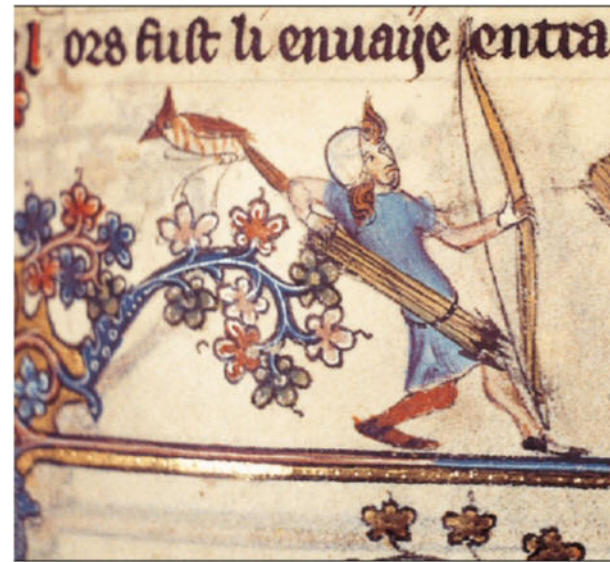 l ors fust li enuaye entra